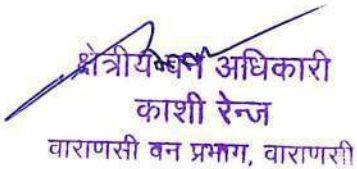 क्षेत्रीय वन अधिकारी
काशी रेन्ज
वाराणसी वन प्रभाग, वाराणसी